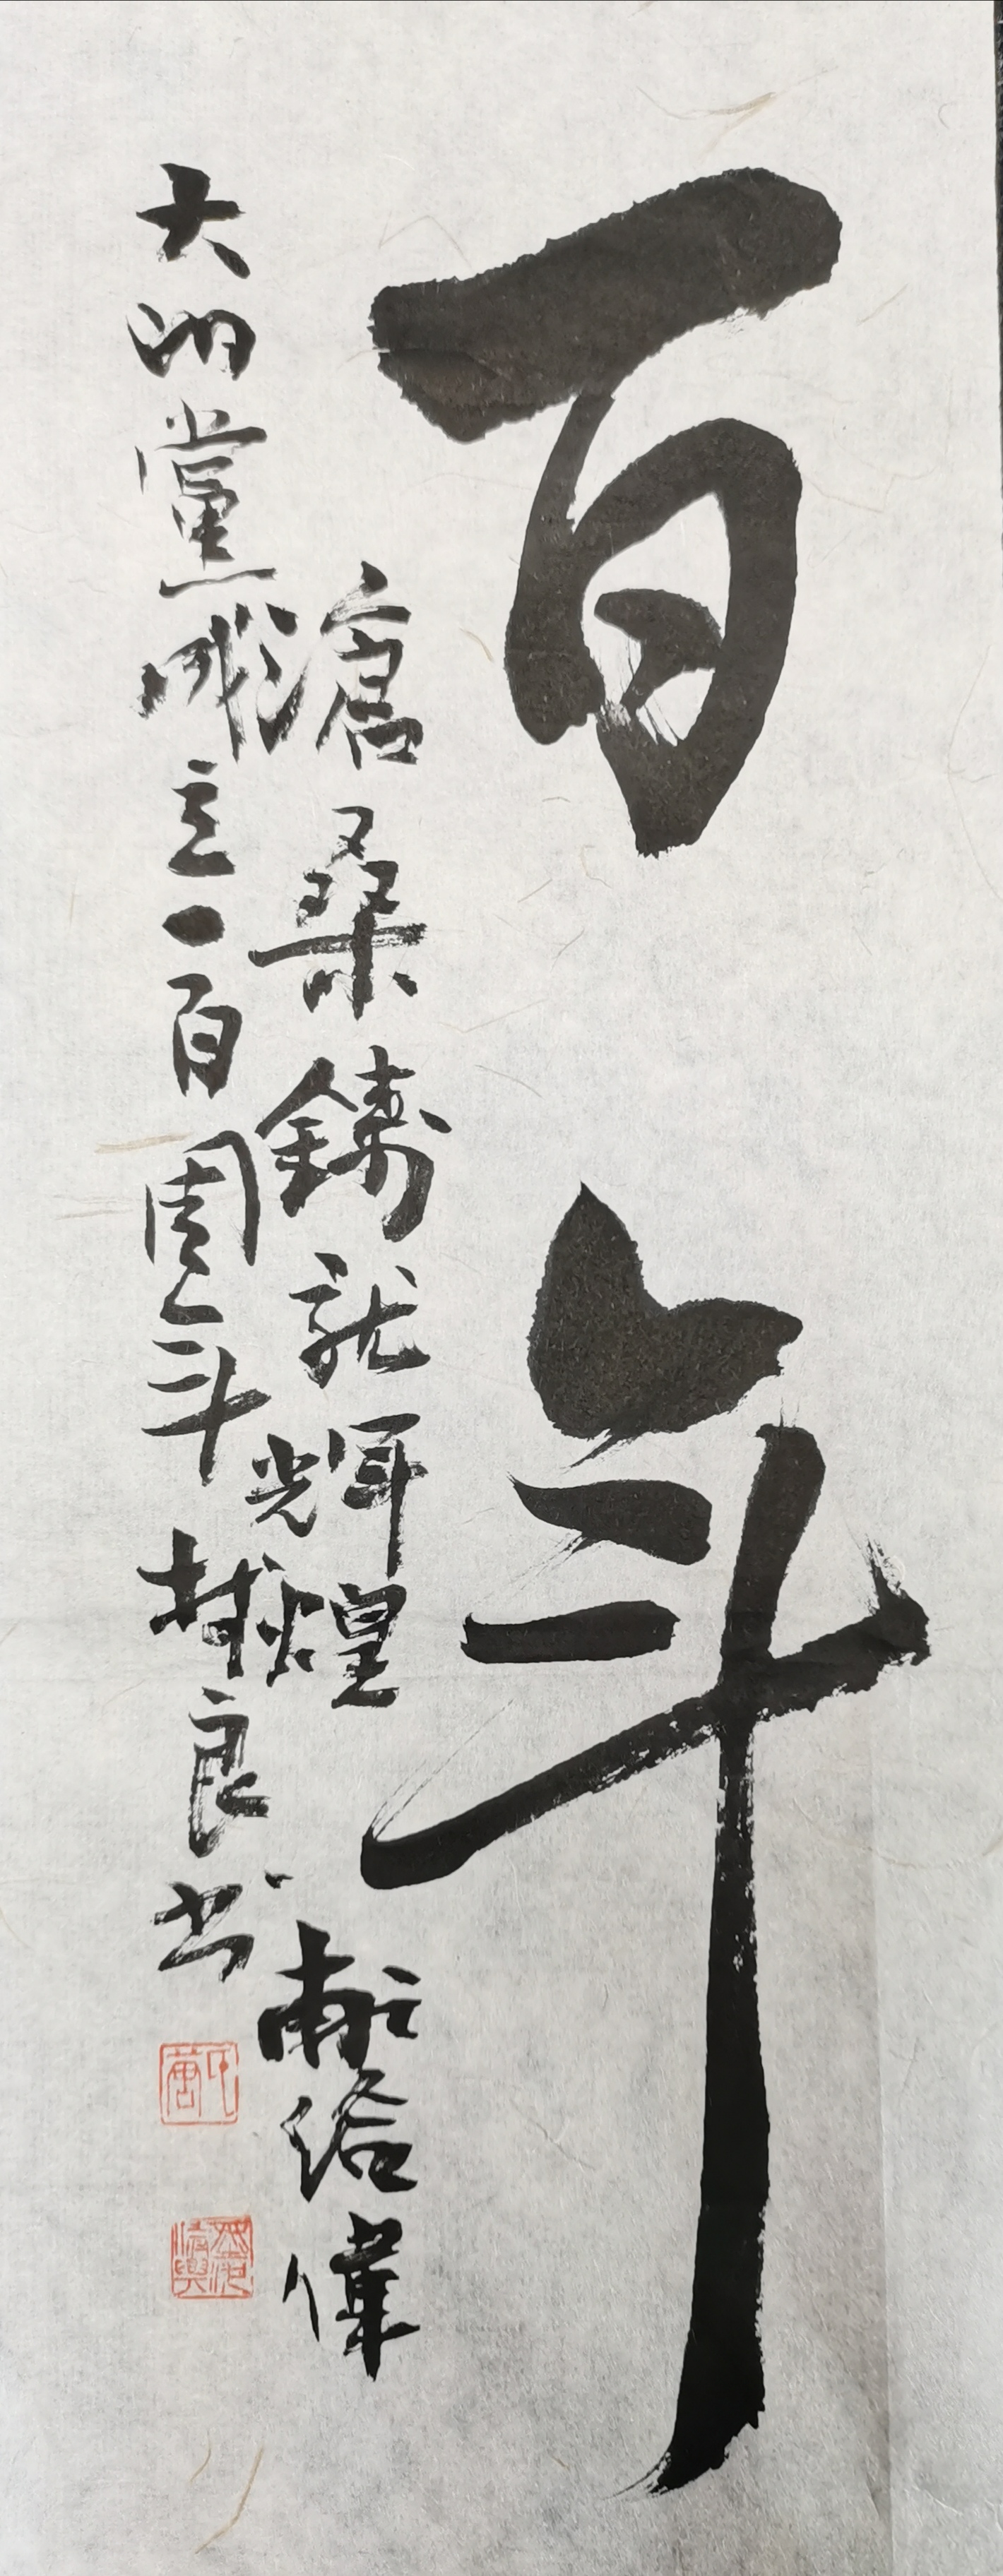 百年
滄桑鑄就輝煌 獻給偉
大的黨成立一百周年 樹良书